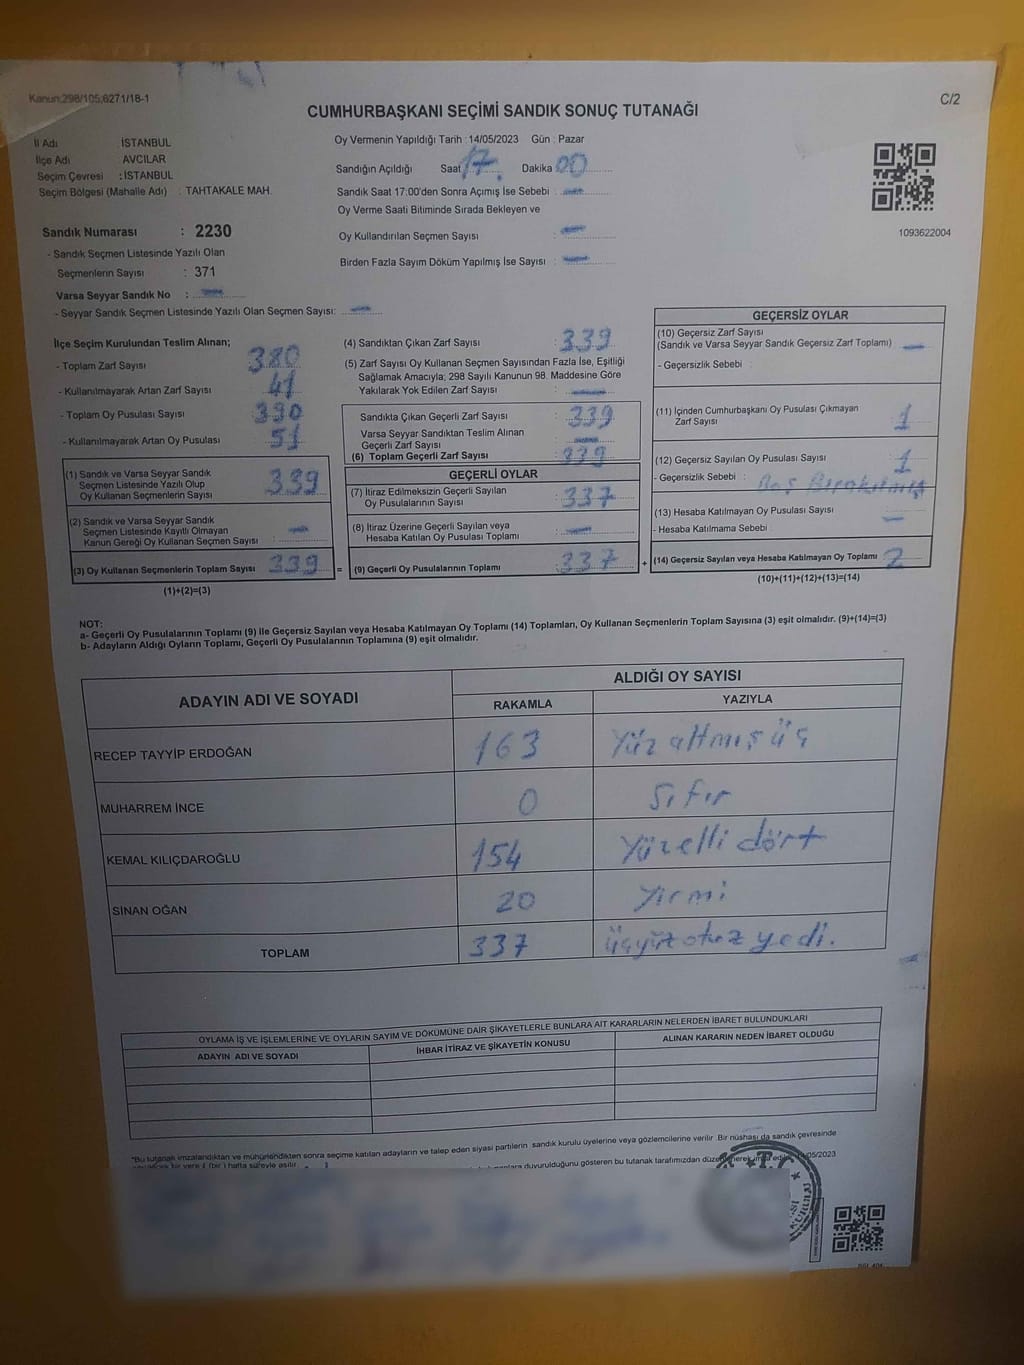 Kanun;298/105;6271/18-1
C/2
CUMHURBAŞKANI SEÇİMİ SANDIK SONUÇ TUTANAĞI
İl Adı : İSTANBUL
İlçe Adı : AVCILAR
Seçim Çevresi : İSTANBUL
Seçim Bölgesi (Mahalle Adı) : TAHTAKALE MAH.
Oy Vermenin Yapıldığı Tarih : 14/05/2023 Gün : Pazar
Sandığın Açıldığı Saat 17. Dakika 00
Sandık Saat 17:00'den Sonra Açımış İse Sebebi : —
Oy Verme Saati Bitiminde Sırada Bekleyen ve
Oy Kullandırılan Seçmen Sayısı : —
Birden Fazla Sayım Döküm Yapılmış İse Sayısı : —
1093622004
Sandık Numarası : 2230
- Sandık Seçmen Listesinde Yazılı Olan
Seçmenlerin Sayısı : 371
Varsa Seyyar Sandık No : —
- Seyyar Sandık Seçmen Listesinde Yazılı Olan Seçmen Sayısı: —
İlçe Seçim Kurulundan Teslim Alınan;
- Toplam Zarf Sayısı : 380
- Kullanılmayarak Artan Zarf Sayısı : 41
- Toplam Oy Pusulası Sayısı : 390
- Kullanılmayarak Artan Oy Pusulası : 51
(1) Sandık ve Varsa Seyyar Sandık
Seçmen Listesinde Yazılı Olup
Oy Kullanan Seçmenlerin Sayısı : 339
(2) Sandık ve Varsa Seyyar Sandık
Seçmen Listesinde Kayıtlı Olmayan
Kanun Gereği Oy Kullanan Seçmen Sayısı : —
(3) Oy Kullanan Seçmenlerin Toplam Sayısı : 339
(1)+(2)=(3)
(4) Sandıktan Çıkan Zarf Sayısı : 339
(5) Zarf Sayısı Oy Kullanan Seçmen Sayısından Fazla İse, Eşitliği
Sağlamak Amacıyla; 298 Sayılı Kanunun 98. Maddesine Göre
Yakılarak Yok Edilen Zarf Sayısı : —
Sandıkta Çıkan Geçerli Zarf Sayısı : 339
Varsa Seyyar Sandıktan Teslim Alınan
Geçerli Zarf Sayısı : —
(6) Toplam Geçerli Zarf Sayısı : 339
GEÇERLİ OYLAR
(7) İtiraz Edilmeksizin Geçerli Sayılan
Oy Pusulalarının Sayısı : 337
(8) İtiraz Üzerine Geçerli Sayılan veya
Hesaba Katılan Oy Pusulası Toplamı : —
= (9) Geçerli Oy Pusulalarının Toplamı : 337
GEÇERSİZ OYLAR
(10) Geçersiz Zarf Sayısı
(Sandık ve Varsa Seyyar Sandık Geçersiz Zarf Toplamı) —
- Geçersizlik Sebebi :
(11) İçinden Cumhurbaşkanı Oy Pusulası Çıkmayan
Zarf Sayısı 1
(12) Geçersiz Sayılan Oy Pusulası Sayısı 1
- Geçersizlik Sebebi : Boş Bırakılmış
(13) Hesaba Katılmayan Oy Pusulası Sayısı —
- Hesaba Katılmama Sebebi
+ (14) Geçersiz Sayılan veya Hesaba Katılmayan Oy Toplamı 2
(10)+(11)+(12)+(13)=(14)
NOT:
a- Geçerli Oy Pusulalarının Toplamı (9) ile Geçersiz Sayılan veya Hesaba Katılmayan Oy Toplamı (14) Toplamları, Oy Kullanan Seçmenlerin Toplam Sayısına (3) eşit olmalıdır. (9)+(14)=(3)
b- Adayların Aldığı Oyların Toplamı, Geçerli Oy Pusulalarının Toplamına (9) eşit olmalıdır.
ADAYIN ADI VE SOYADI
ALDIĞI OY SAYISI
RAKAMLA YAZIYLA
RECEP TAYYİP ERDOĞAN 163 Yüz altmış üç
MUHARREM İNCE 0 Sıfır
KEMAL KILIÇDAROĞLU 154 Yüzelli dört
SİNAN OĞAN 20 Yirmi
TOPLAM 337 üçyüz otuz yedi.
OYLAMA İŞ VE İŞLEMLERİNE VE OYLARIN SAYIM VE DÖKÜMÜNE DAİR ŞİKAYETLERLE BUNLARA AİT KARARLARIN NELERDEN İBARET BULUNDUKLARI
ADAYIN ADI VE SOYADI İHBAR İTİRAZ VE ŞİKAYETİN KONUSU ALINAN KARARIN NEDEN İBARET OLDUĞU
*Bu tutanak imzalandıktan ve mühürlendikten sonra seçime katılan adayların ve talep eden siyasi partilerin sandık kurulu üyelerine veya gözlemcilerine verilir. Bir nüshası da sandık çevresinde
duyurulduğunu gösteren bu tutanak tarafımızdan
T.C.